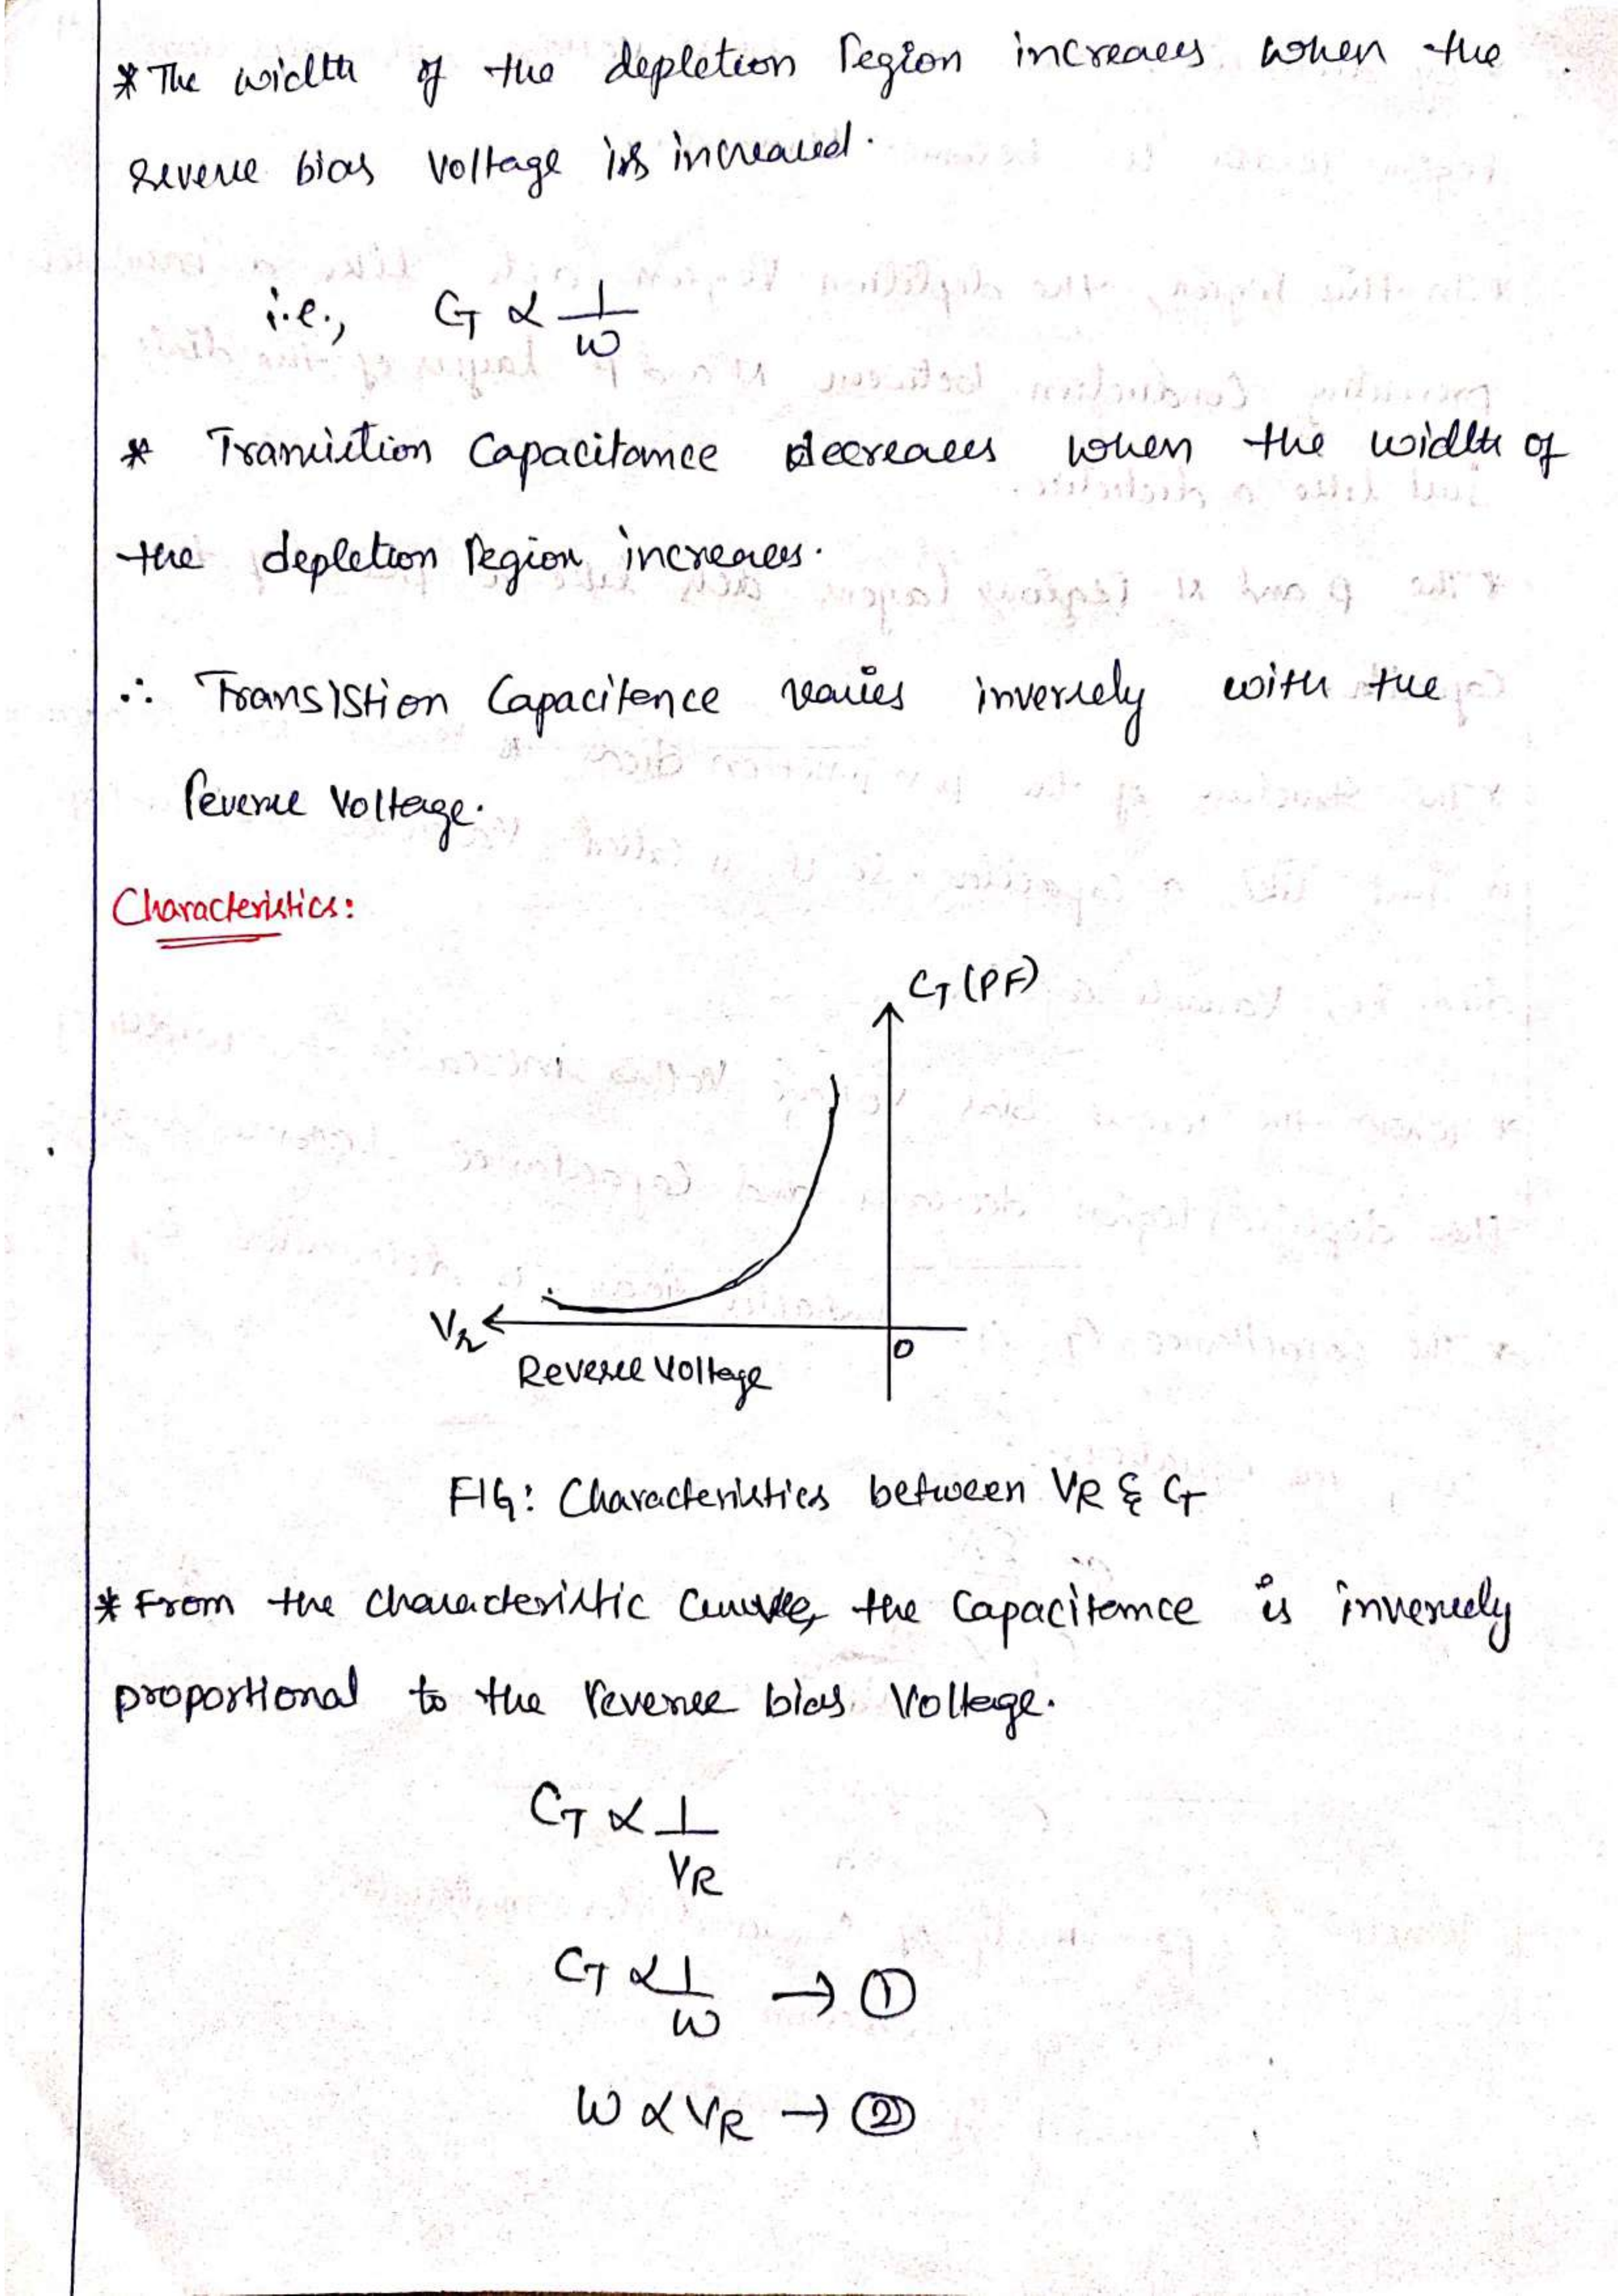 * The width of the depletion region increases when the
reverse bias voltage is increased.
i.e., CT ∝ 1/W
* Transistion Capacitance decreases when the width of
the depletion region increases.
∴ Transistion Capacitence varies inversely with the
reverse voltage.
Characteristics:
CT (PF)
VR
0
Reverse Voltage
FIG: Characteristics between VR & CT
* From the characteristic curve, the Capacitance is inversely
proportional to the reverse bias Voltage.
CT ∝ 1/VR
CT ∝ 1/W → ①
W ∝ VR → ②